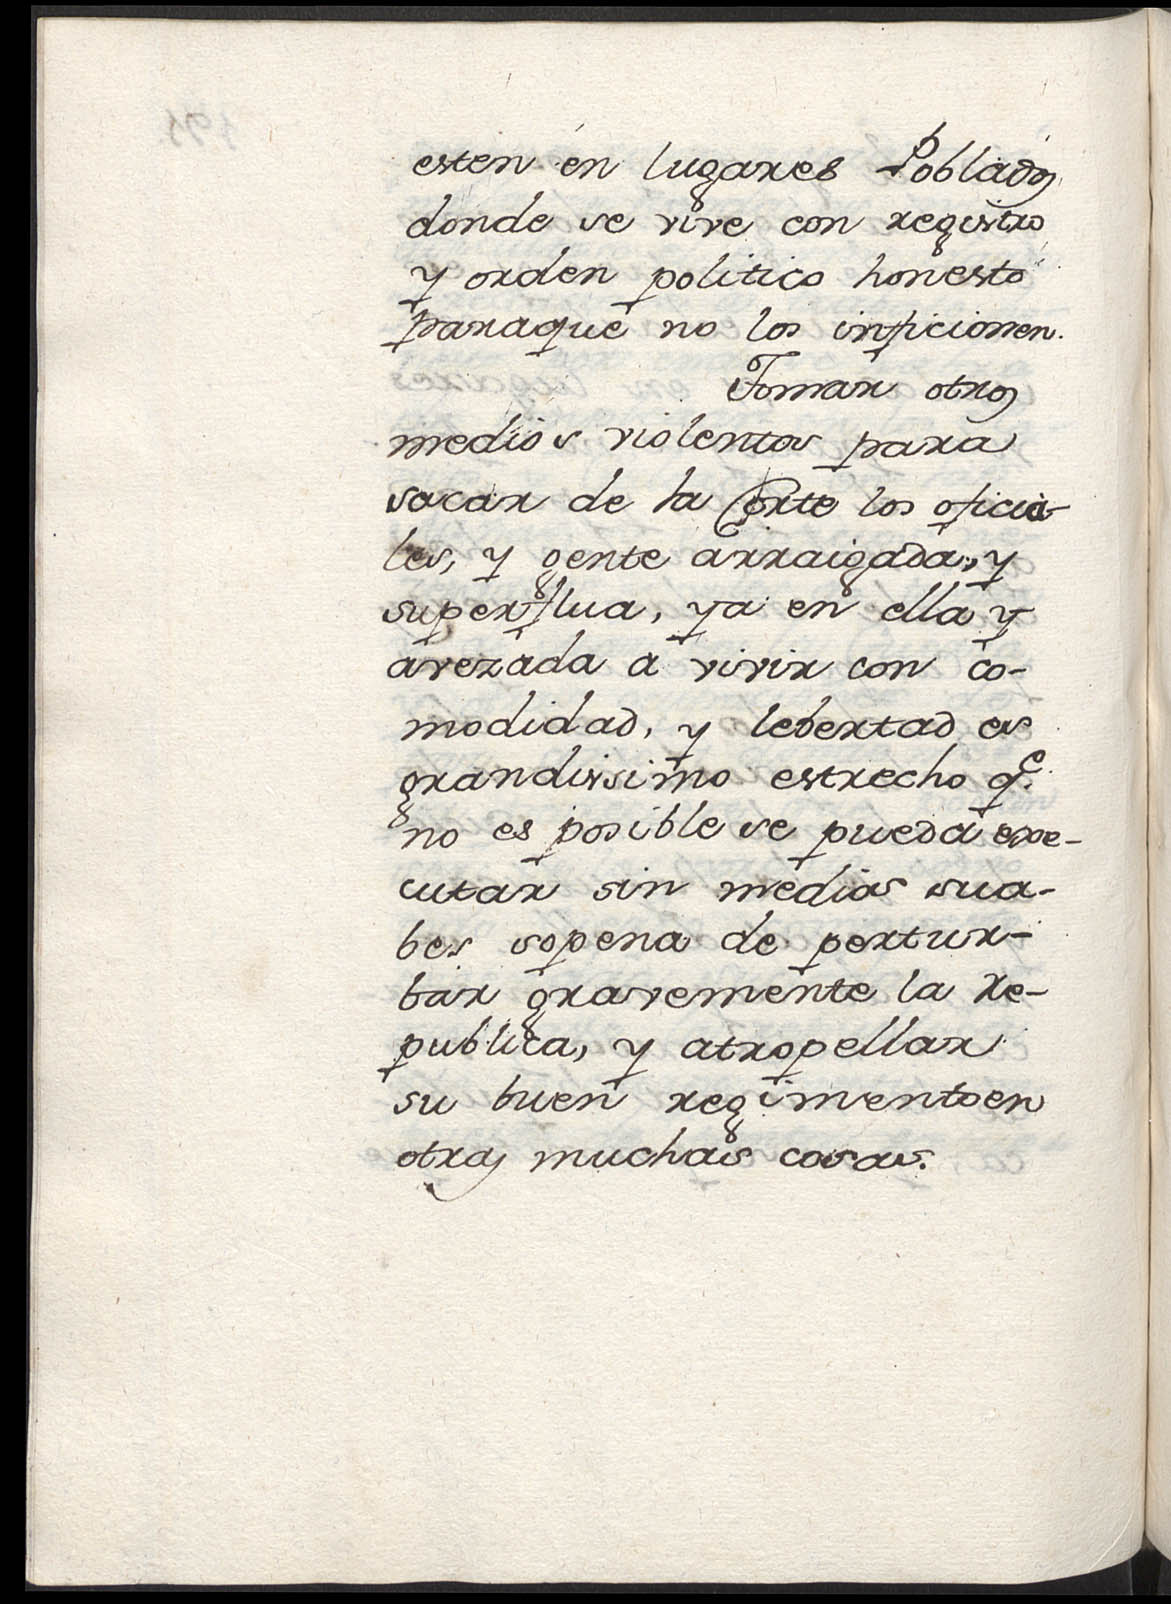 esten en lugares Poblados
donde se vive con registro
y orden politico honesto
paraque no los inficionen.
Tomar otros
medios violentos para
sacar de la Corte los oficia-
les, y gente arraigada, y
superflua, ya en ella y
avezada a vivir con co-
modidad, y lebertad es
grandissimo estrecho q.e
no es posible se pueda exe-
cutar sin medios sua-
bes sopena de pertur-
bar gravemente la Re-
publica, y atropellar
su buen regimento en
otras muchas cosas.